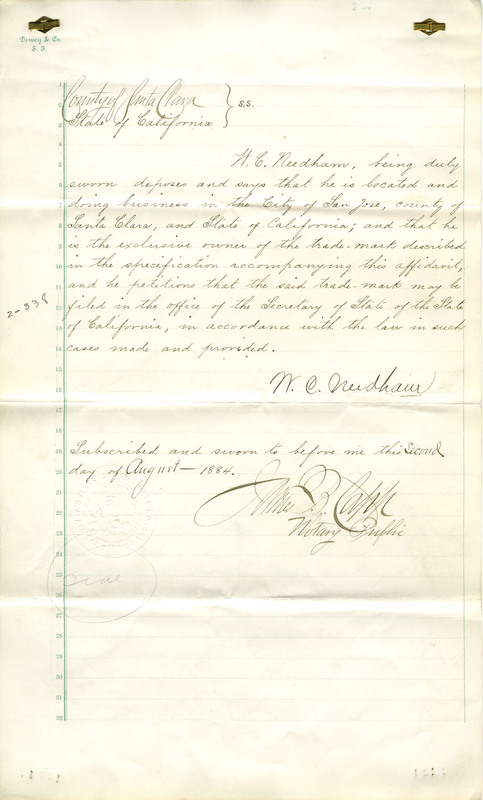 Dewey & Co.
S. F.
County of Santa Clara } s.s.
State of California
W. C. Needham, being duly
sworn deposes and says that he is located and
doing business in the City of San Jose, county of
Santa Clara, and State of California; and that he
is the exclusive owner of the trade-mark described
in the specification accompanying this affidavit,
and he petitions that the said trade-mark may be
filed in the office of the Secretary of State of the State
of California, in accordance with the law in such
cases made and provided.
2-338
W. C. Needham
Subscribed and sworn to before me this Second
day of August — 1884.
James B. Capp
Notary Public
Seal
1
2
3
4
5
6
7
8
9
10
11
12
13
14
15
16
17
18
19
20
21
22
23
24
25
26
27
28
29
30
31
32